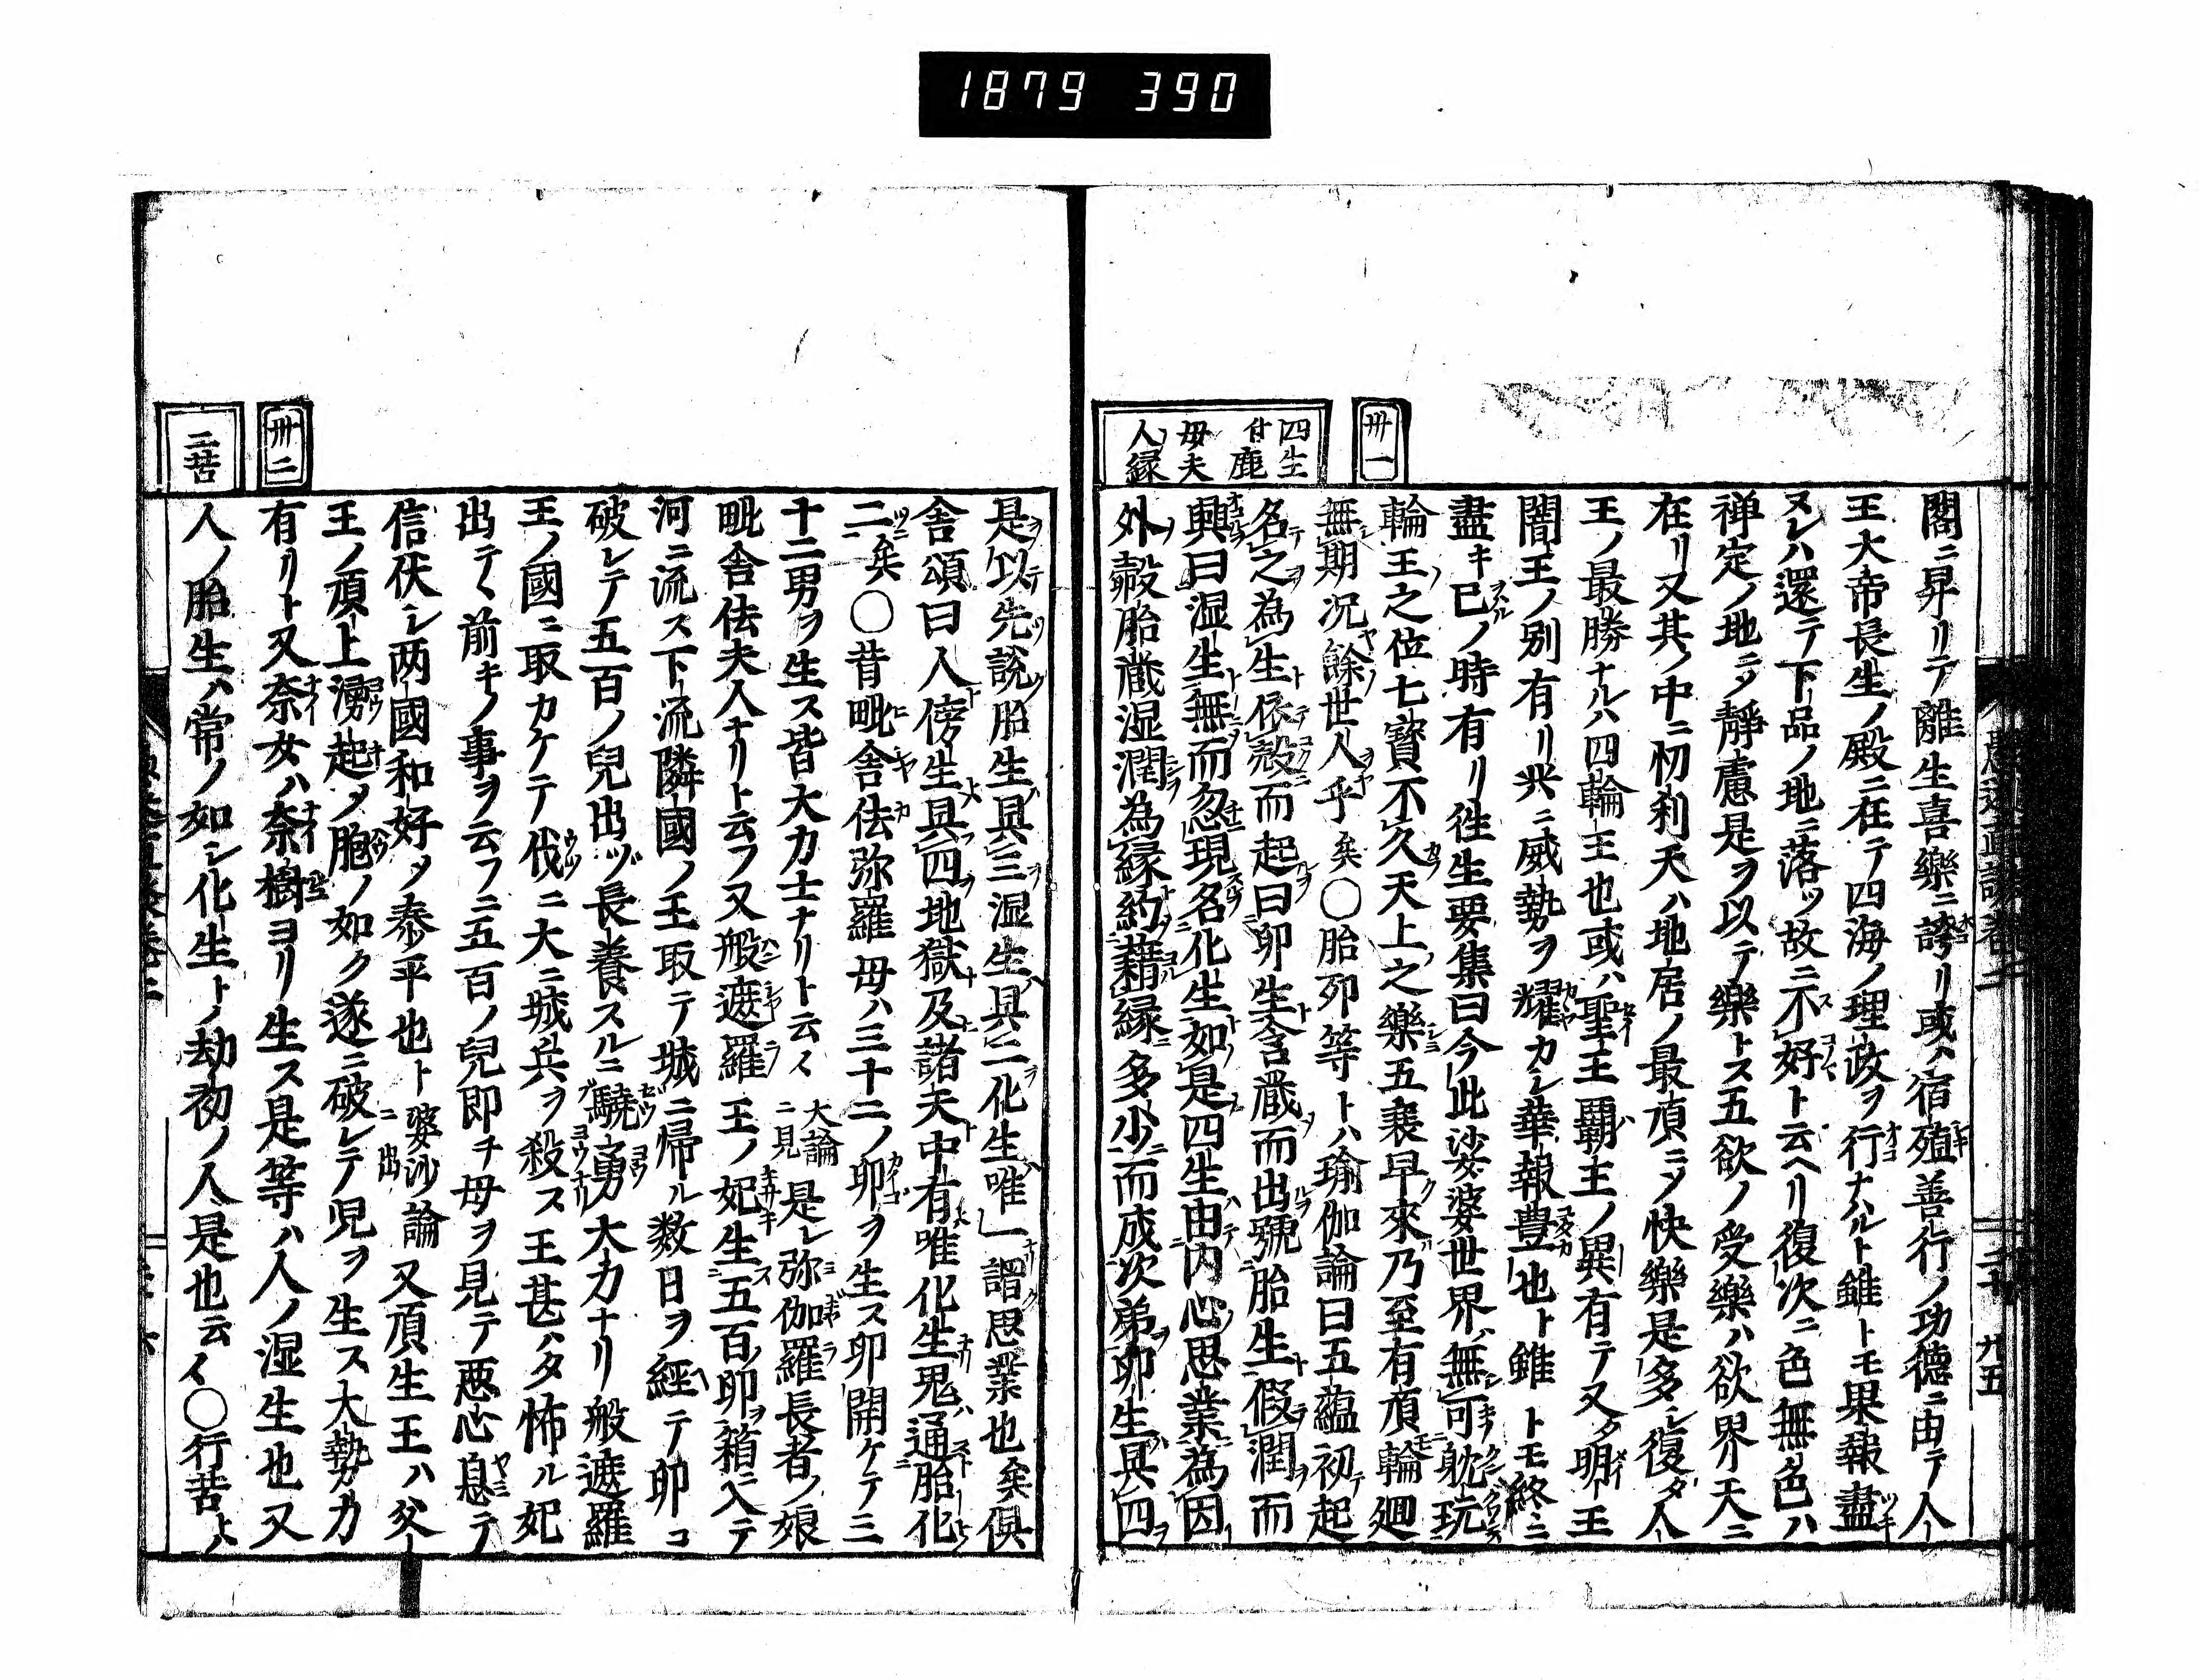 1879 390
卅一
四生
付鹿
母夫
人縁
閣ニ昇リテ離生喜樂ニ誇リ或ハ宿殖善行ノ功德ニ由テ人
王大帝長生ノ殿ニ在テ四海ノ理政ヲ行ナハルト雖トモ果報盡
ヌレハ還テ下品ノ地ニ落ツ故ニ不好ト云ヘリ復次ニ色無色ハ
禅定ノ地ニメ靜慮是ヲ以テ樂トス五欲ノ受樂ハ欲界天ニ
在リ又其ノ中ニ忉利天ハ地居ノ最頂ニメ快樂是多シ復タ人
王ノ最勝ナルハ四輪王也或ハ聖王覇主ノ異有テ又タ明王
闇王ノ別有リ共ニ威勢ヲ耀カシ華報豊也ト雖トモ終ニ
盡キ已ノ時有リ徃生要集曰今此娑婆世界無可耽玩
輪王之位七寳不久天上之樂五衰早來乃至有頂輪廻
無期况餘世人乎矣〇胎卵等トハ瑜伽論曰五蘊初起
名之為生依殼而起曰卵生含藏而出號胎生假潤而
興曰湿生無而忽現名化生如是四生由内心思業為因
外殼胎藏湿潤為縁約藉縁多少而成次第卵生具四
是以先說胎生具三湿生具二化生唯一謂思業也矣倶
舎頌曰人傍生具四地獄及諸天中有唯化生鬼通胎化
二矣〇昔毗舎佉弥羅母ハ三十二ノ卵ヲ生ス卵開ケテ三
十二男ヲ生ス皆大力士ナリト云々大論ニ見是レ弥伽羅長者ノ娘
毗舎佉夫人ナリト云フ又般遮羅王ノ妃生五百卵箱ニ入テ
河ニ流ス下流隣國ノ王取テ城ニ帰ル数日ヲ經テ卵コ
破レテ五百ノ兒出ヅ長養スルニ驍勇大力ナリ般遮羅
王ノ國ニ取カケテ伐ニ大ニ城兵ヲ殺ス王甚ハタ怖ル妃
出テ丶前キノ事ヲ云フニ五百ノ兒即チ母ヲ見テ悪心息テ
信伏シ两國和好メ泰平也ト婆沙論ニ出又頂生王ハ父ノ
王ノ頂上湧起メ胞ノ如ク遂ニ破レテ児ヲ生ス大勢力
有リト又奈女ハ奈樹ヨリ生ス是等ハ人ノ湿生也又
人ノ胎生ハ常ノ如シ化生トハ劫初ノ人是也云々〇行苦トハ
卅二
二苦